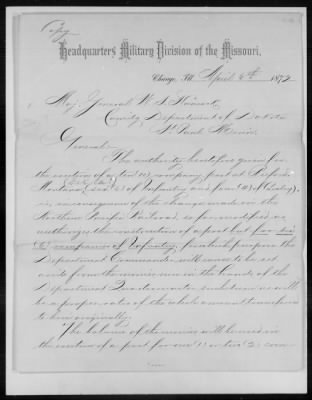 Copy
Headquarters Military Division of the Missouri,
Chicago, Ill. April 4th 1872
Maj. General W. S. Hancock
Comdg Department of Dakota
St. Paul Minn.
General:
The authority heretofore given for
the erection of a ten (10) company post at
Montana, six (6) of Infantry and four (4) of Cavalry,
is, in consequence of the change made in the
Northern Pacific Railroad, so far modified as
authorize the construction of a post but for six
(6) companies of Infantry, for which purpose the
Department Commander will cause to be set
aside from the monies now in the hands of the
Department Quartermaster such sum as will
be a proper ratio of the whole amount transferred
to him originally.
The balance of the monies will be used in
the erection of a post for one (1) or two (2) com-